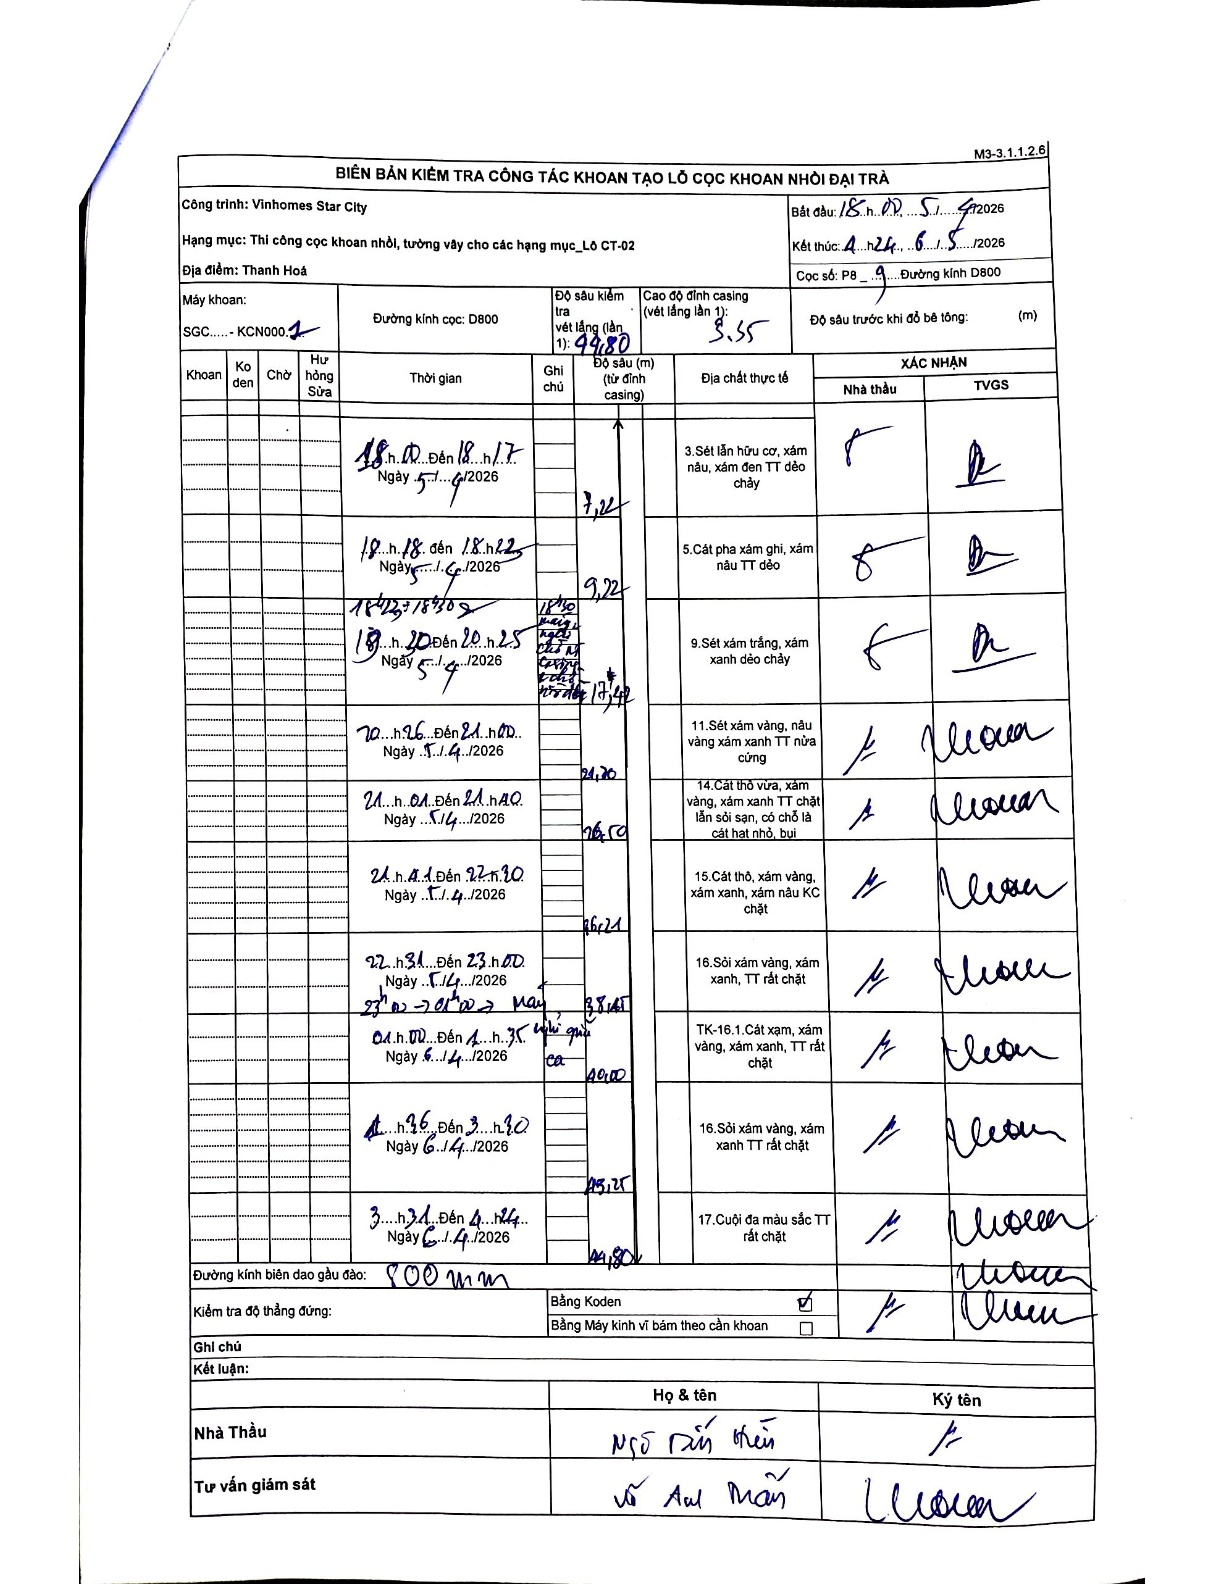 M3-3.1.1.2.6
BIÊN BẢN KIỂM TRA CÔNG TÁC KHOAN TẠO LỖ CỌC KHOAN NHỒI ĐẠI TRÀ
Công trình: Vinhomes Star City
Bắt đầu: 18 h 00, 5/4/2026
Hạng mục: Thi công cọc khoan nhồi, tường vây cho các hạng mục_Lô CT-02
Kết thúc: 4 h 24, 6/5/2026
Địa điểm: Thanh Hoá
Cọc số: P8 _ 9 Đường kính D800
Máy khoan:
SGC..... - KCN000.2
Đường kính cọc: D800
Độ sâu kiểm tra vét lắng (lần 1): 44,80
Cao độ đỉnh casing (vét lắng lần 1): 3.35
Độ sâu trước khi đổ bê tông: (m)
Khoan Ko den Chờ Hư hỏng Sửa Thời gian Ghi chú Độ sâu (m) (từ đỉnh casing) Địa chất thực tế XÁC NHẬN
Nhà thầu TVGS
18 h 00 Đến 18 h 17
Ngày 5/4/2026
7,22
3.Sét lẫn hữu cơ, xám nâu, xám đen TT dẻo chảy
18 h 18 đến 18 h 22
Ngày 5/4/2026
9,22
5.Cát pha xám ghi, xám nâu TT dẻo
18h30
h 20 Đến 20 h 25
Ngày 5/4/2026
17,42
9.Sét xám trắng, xám xanh dẻo chảy
20 h 26 Đến 21 h 00
Ngày 5/4/2026
21,20
11.Sét xám vàng, nâu vàng xám xanh TT nửa cứng
21 h 01 Đến 21 h 40
Ngày 5/4/2026
26,50
14.Cát thô vừa, xám vàng, xám xanh TT chặt lẫn sỏi sạn, có chỗ là cát hạt nhỏ, bụi
21 h 41 Đến 22 h 30
Ngày 5/4/2026
36,21
15.Cát thô, xám vàng, xám xanh, xám nâu KC chặt
22 h 31 Đến 23 h 00
Ngày 5/4/2026
38,45
16.Sỏi xám vàng, xám xanh, TT rất chặt
23h00 -> 01h00 -> Máy nghỉ giữa ca
01 h 00 Đến 1 h 35
Ngày 6/4/2026
40,00
TK-16.1.Cát xạm, xám vàng, xám xanh, TT rất chặt
1 h 36 Đến 3 h 30
Ngày 6/4/2026
43,25
16.Sỏi xám vàng, xám xanh TT rất chặt
3 h 31 Đến 4 h 24
Ngày 6/4/2026
44,80
17.Cuội đa màu sắc TT rất chặt
Đường kính biên dao gầu đào: 800 mm
Kiểm tra độ thẳng đứng:
Bằng Koden ☑
Bằng Máy kinh vĩ bám theo cần khoan ☐
Ghi chú
Kết luận:
Họ & tên Ký tên
Nhà Thầu
Tư vấn giám sát